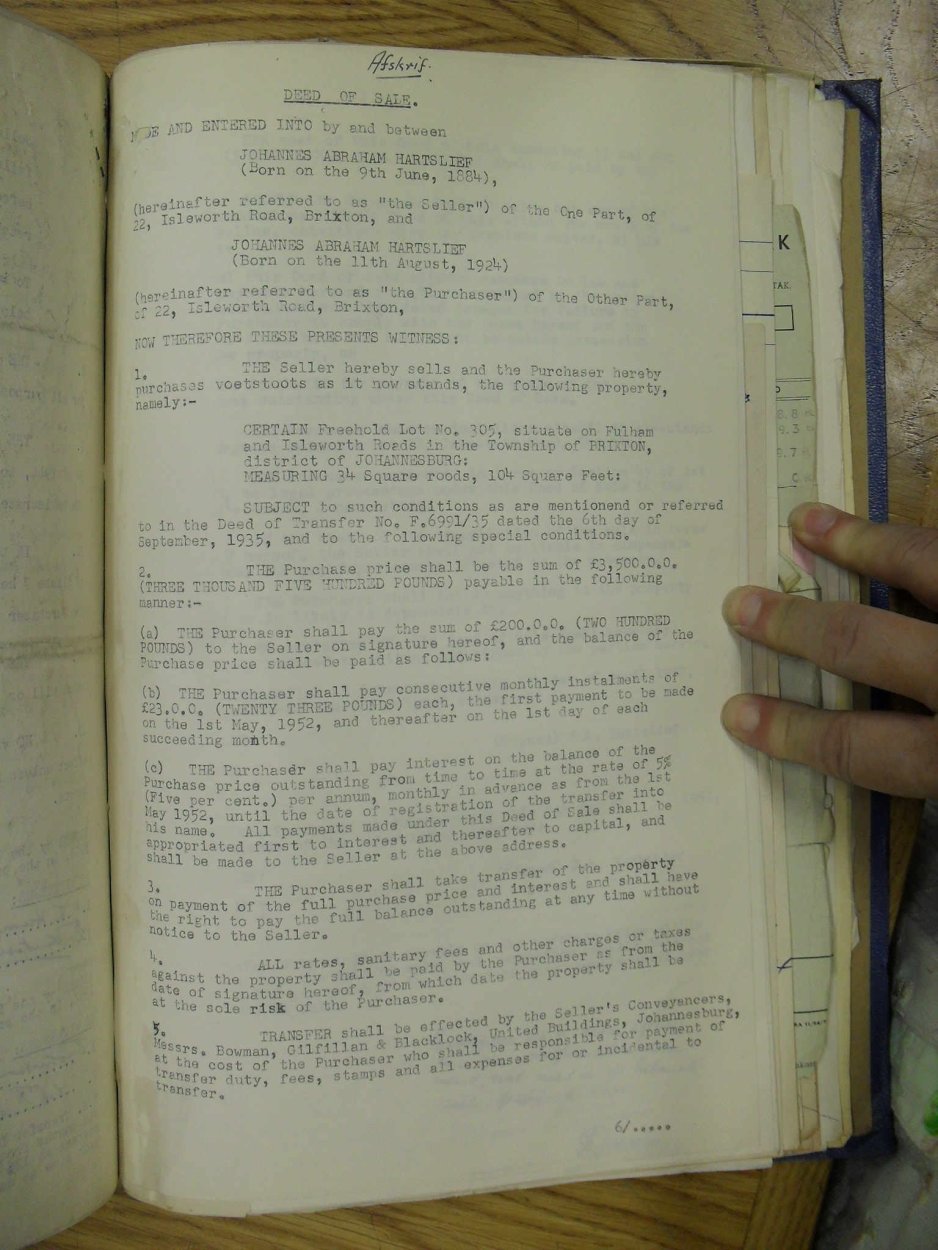 Afskrif.
DEED OF SALE.
MADE AND ENTERED INTO by and between
JOHANNES ABRAHAM HARTSLIEF
(Born on the 9th June, 1884),
(hereinafter referred to as "the Seller") of the One Part, of
22, Isleworth Road, Brixton, and
JOHANNES ABRAHAM HARTSLIEF
(Born on the 11th August, 1924)
(hereinafter referred to as "the Purchaser") of the Other Part,
of 22, Isleworth Road, Brixton,
NOW THEREFORE THESE PRESENTS WITNESS:
1. THE Seller hereby sells and the Purchaser hereby
purchases voetstoots as it now stands, the following property,
namely:-
CERTAIN Freehold Lot No. 305, situate on Fulham
and Isleworth Roads in the Township of BRIXTON,
district of JOHANNESBURG:
MEASURING 34 Square roods, 104 Square Feet:
SUBJECT to such conditions as are mentionend or referred
to in the Deed of Transfer No. F.6991/35 dated the 6th day of
September, 1935, and to the following special conditions.
2. THE Purchase price shall be the sum of £3,500.0.0.
(THREE THOUSAND FIVE HUNDRED POUNDS) payable in the following
manner:-
(a) THE Purchaser shall pay the sum of £200.0.0. (TWO HUNDRED
POUNDS) to the Seller on signature hereof, and the balance of the
Purchase price shall be paid as follows:
(b) THE Purchaser shall pay consecutive monthly instalments of
£23.0.0. (TWENTY THREE POUNDS) each, the first payment to be made
on the 1st May, 1952, and thereafter on the 1st day of each
succeeding month.
(c) THE Purchaser shall pay interest on the balance of the
Purchase price outstanding from time to time at the rate of 5%
(Five per cent.) per annum, monthly in advance as from the 1st
May 1952, until the date of registration of the transfer into
his name. All payments made under this Deed of Sale shall be
appropriated first to interest and thereafter to capital, and
shall be made to the Seller at the above address.
3. THE Purchaser shall take transfer of the property
on payment of the full purchase price and interest and shall have
the right to pay the full balance outstanding at any time without
notice to the Seller.
4. ALL rates, sanitary fees and other charges or taxes
against the property shall be paid by the Purchaser as from the
date of signature hereof, from which date the property shall be
at the sole risk of the Purchaser.
5. TRANSFER shall be effected by the Seller's Conveyancers,
Messrs. Bowman, Gilfillan & Blacklock, United Buildings, Johannesburg,
at the cost of the Purchaser who shall be responsible for payment of
transfer duty, fees, stamps and all expenses for or incidental to
transfer.
6/.....
K
TAK.